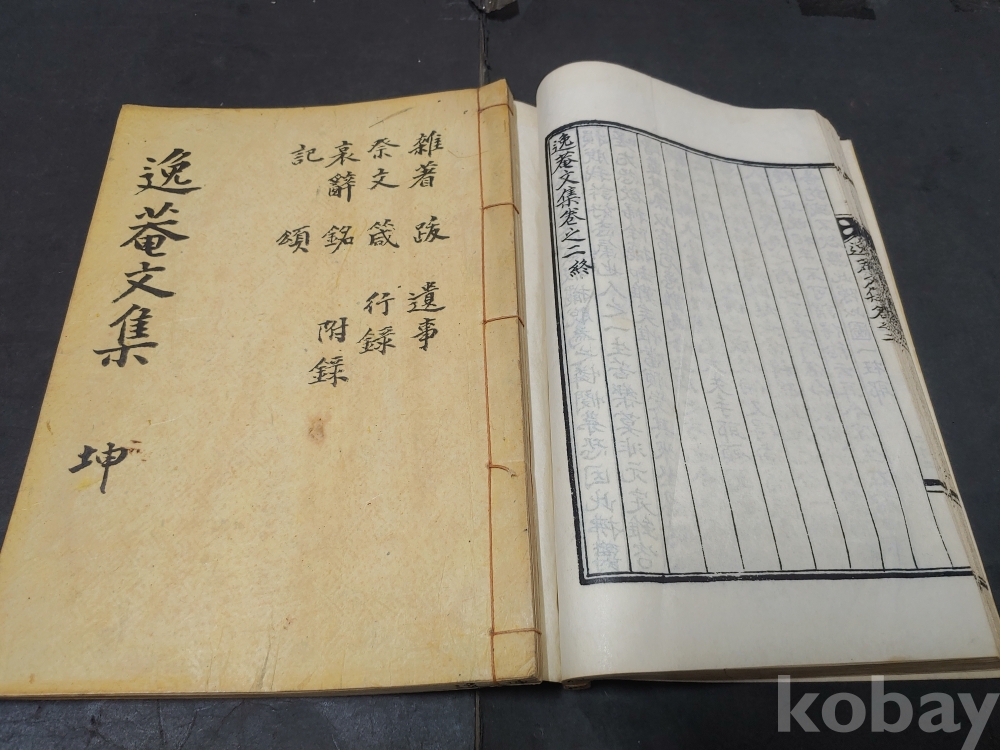 逸菴文集 坤
雜著 跋 遺事
祭文 箴 行錄
哀辭 銘 附錄
記 頌
逸菴文集卷之二終
逸菴文集卷之二
kobay